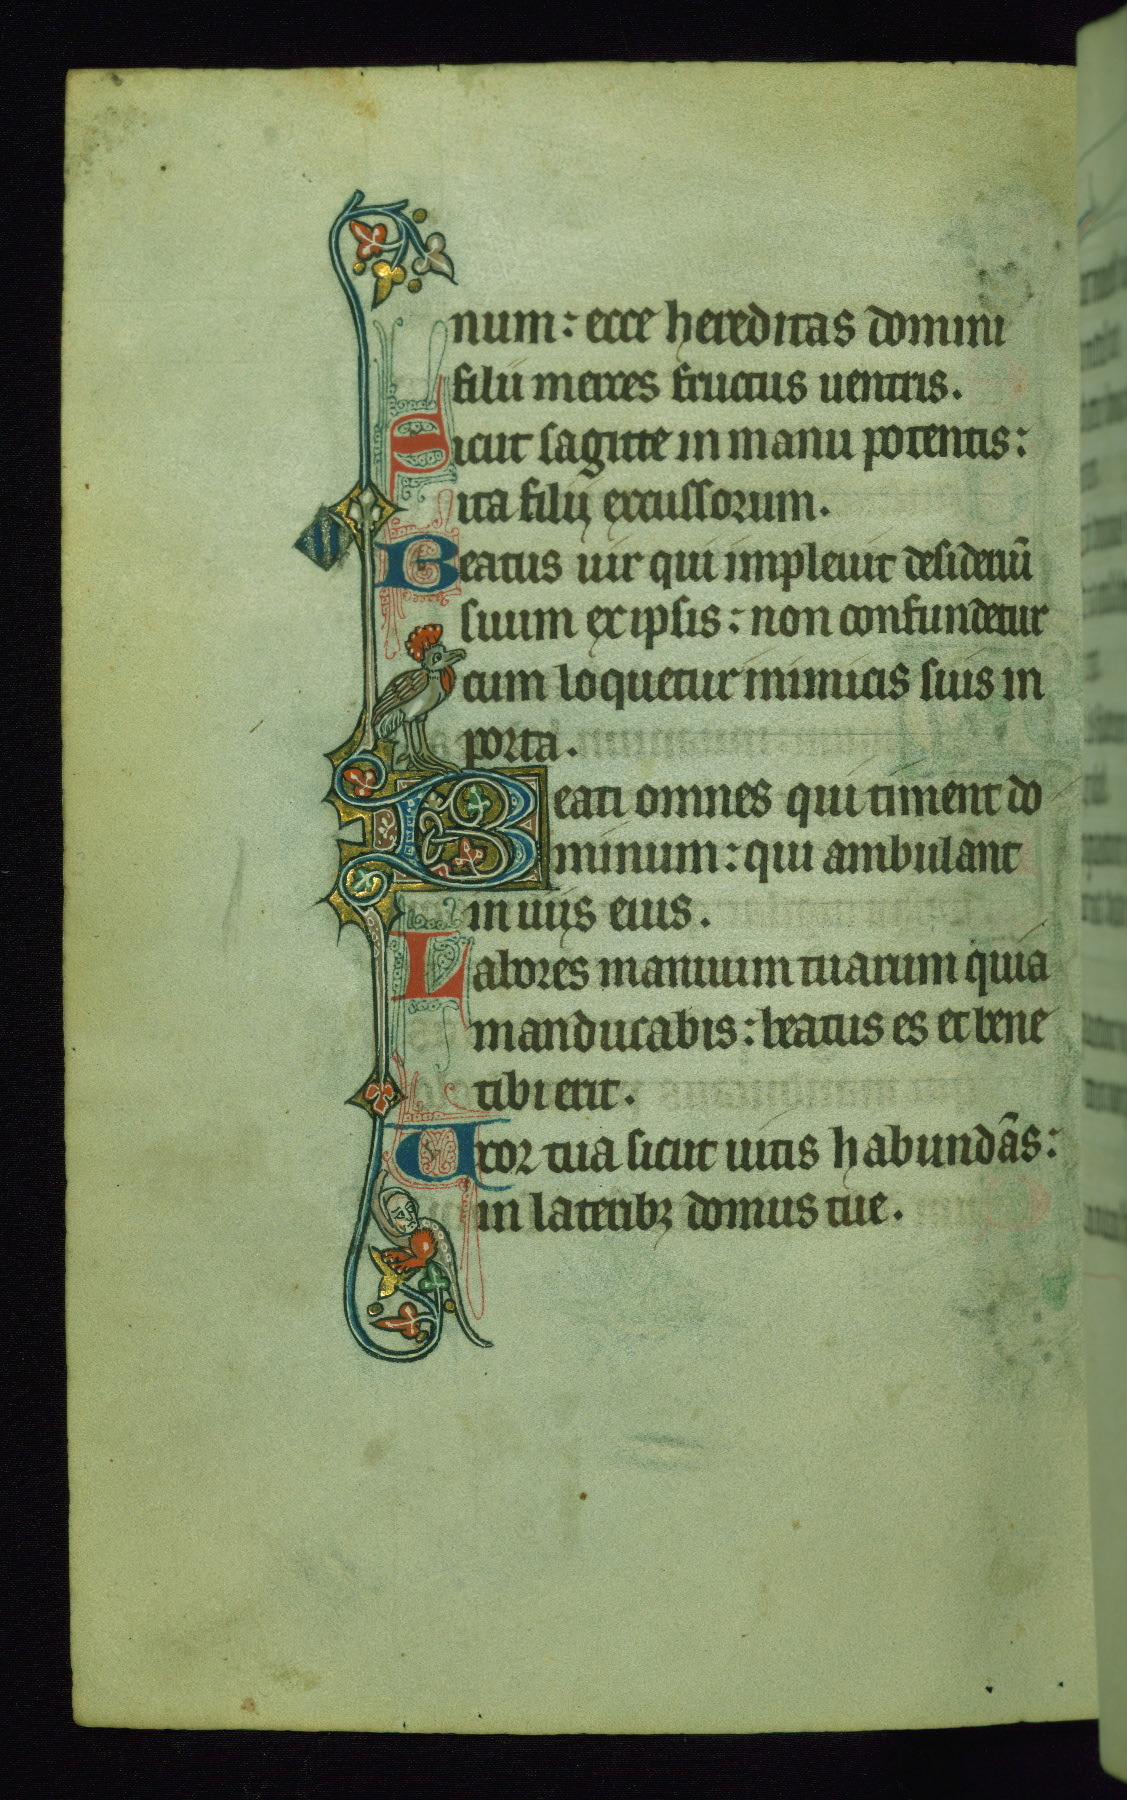 num: ecce hereditas domini
filii merces fructus uentris.
Sicut sagitte in manu potentis:
ita filij excussorum.
Beatus uir qui impleuit desideriū
suum ex ipsis: non confundetur
cum loquetur inimicis suis in
porta.
Beati omnes qui timent do
minum: qui ambulant
in uiis eius.
Labores manuum tuarum quia
manducabis: beatus es et bene
tibi erit.
Uxor tua sicut uitis habundās:
in lateribꝫ domus tue.